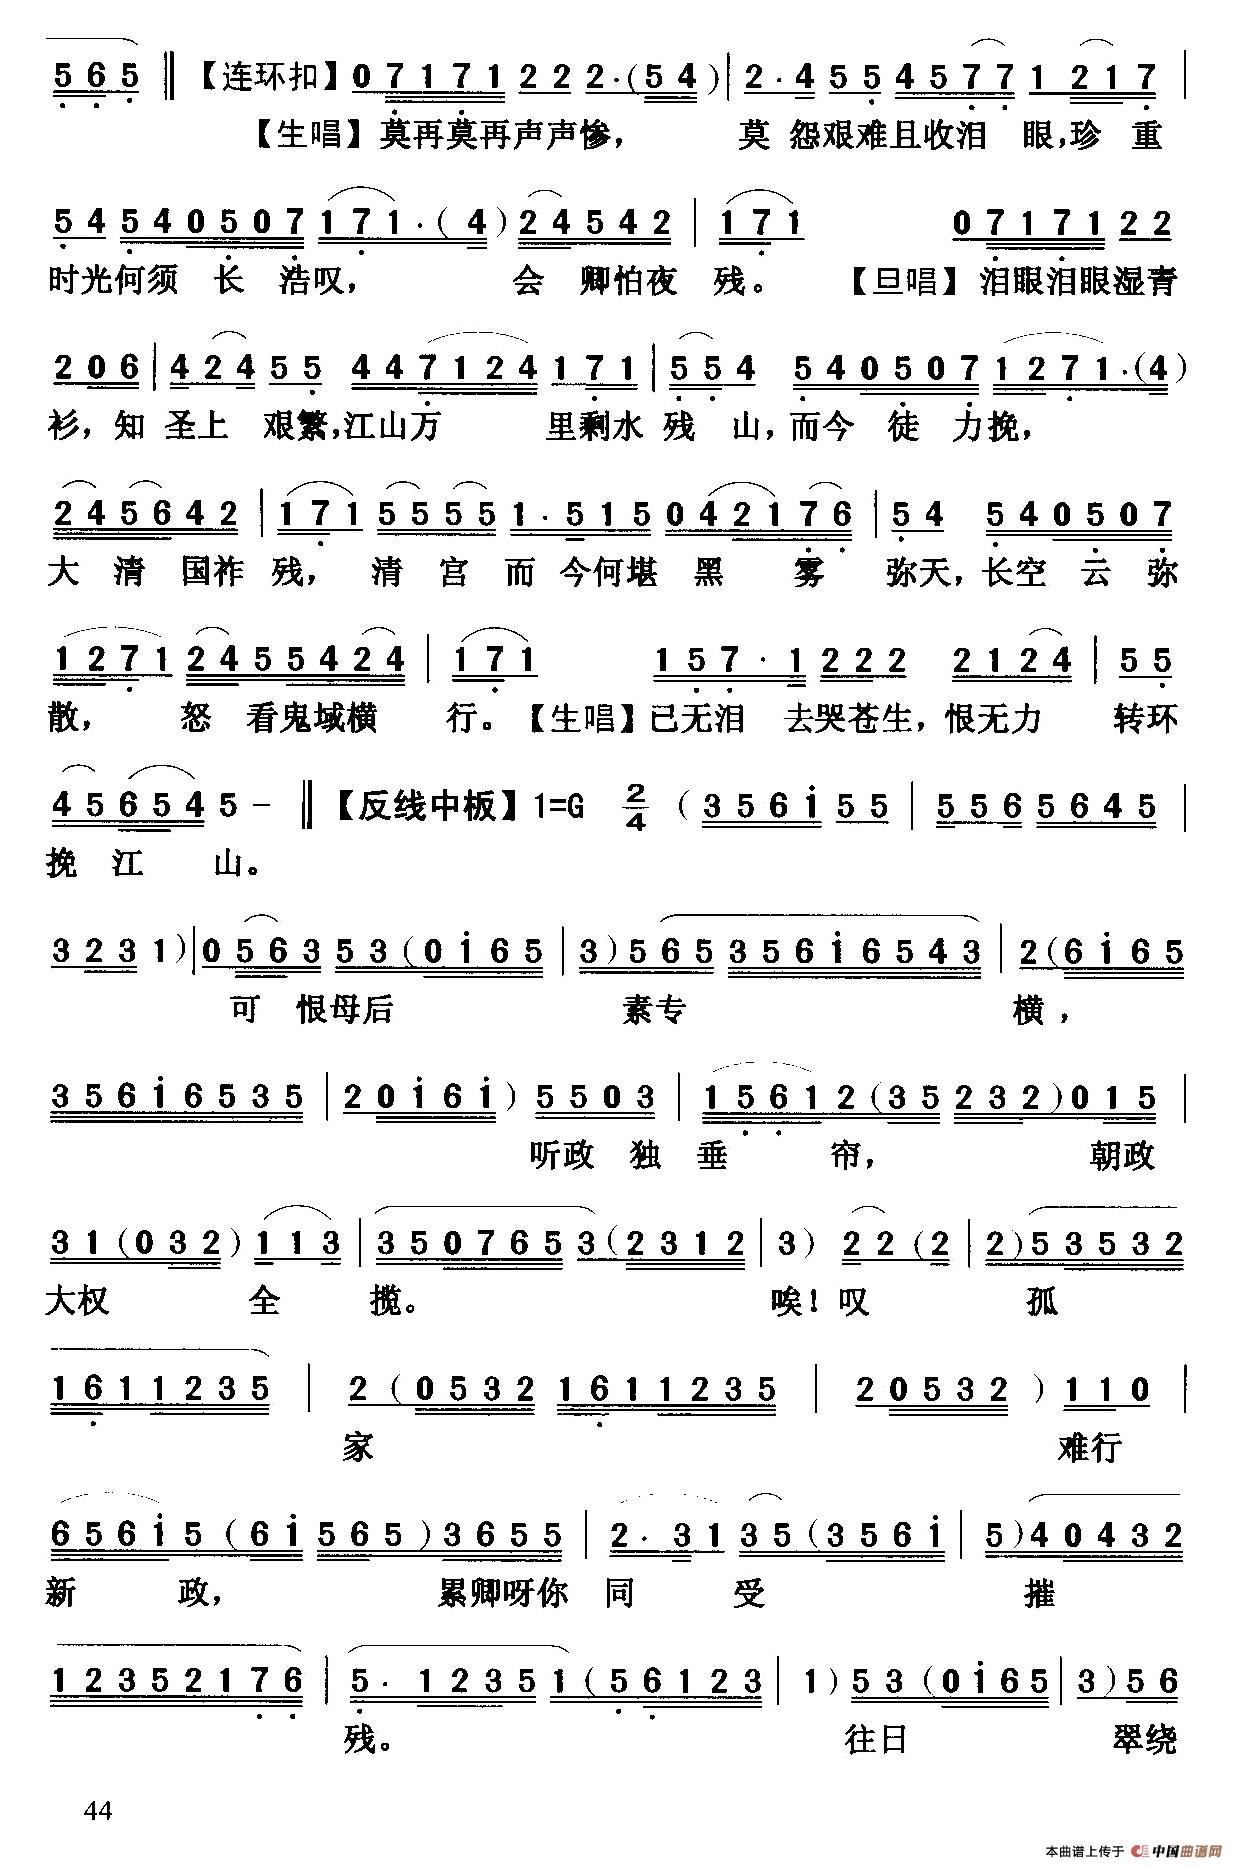 5 6 5 ‖ 【连环扣】 0 7 1 7 1 2 2 2 2 · ( 5 4 ) | 2 · 4 5 5 4 5 7 7 1 2 1 7 |
【生唱】莫再莫再声声惨， 莫 怨艰难且收泪 眼，珍 重
5 4 5 4 0 5 0 7 1 7 1 · ( 4 ) 2 4 5 4 2 | 1 7 1 0 7 1 7 1 2 2
时光何须 长 浩叹， 会 卿怕夜 残。 【旦唱】泪眼泪眼湿青
2 0 6 | 4 2 4 5 5 4 4 7 1 2 4 1 7 1 | 5 5 4 5 4 0 5 0 7 1 2 7 1 · ( 4 )
衫，知 圣上 艰繁，江山万 里剩水 残 山，而今 徒 力挽，
2 4 5 6 4 2 | 1 7 1 5 5 5 5 1 · 5 1 5 0 4 2 1 7 6 | 5 4 5 4 0 5 0 7
大 清 国祚 残， 清 宫 而 今何堪 黑 雾 弥天，长空 云 弥
1 2 7 1 2 4 5 5 4 2 4 | 1 7 1 1 5 7 · 1 2 2 2 2 1 2 4 | 5 5
散， 怒 看鬼域横 行。【生唱】已无泪 去哭苍生，恨无力 转环
4 5 6 5 4 5 - ‖ 【反线中板】1=G 2/4 ( 3 5 6 i 5 5 | 5 5 6 5 6 4 5 |
挽 江 山。
3 2 3 1 ) | 0 5 6 3 5 3 ( 0 i 6 5 | 3 ) 5 6 5 3 5 6 i 6 5 4 3 | 2 ( 6 i 6 5
可 恨母后 素专 横，
3 5 6 i 6 5 3 5 | 2 0 i 6 i ) 5 5 0 3 | 1 5 6 1 2 ( 3 5 2 3 2 ) 0 1 5 |
听政 独 垂 帘， 朝政
3 1 ( 0 3 2 ) 1 1 3 | 3 5 0 7 6 5 3 ( 2 3 1 2 | 3 ) 2 2 ( 2 | 2 ) 5 3 5 3 2
大权 全 揽。 唉！叹 孤
1 6 1 1 2 3 5 | 2 ( 0 5 3 2 1 6 1 1 2 3 5 | 2 0 5 3 2 ) 1 1 0 |
家 难行
6 5 6 i 5 ( 6 i 5 6 5 ) 3 6 5 5 | 2 · 3 1 3 5 ( 3 5 6 i | 5 ) 4 0 4 3 2
新 政， 累卿呀你 同 受 摧
1 2 3 5 2 1 7 6 | 5 · 1 2 3 5 1 ( 5 6 1 2 3 | 1 ) 5 3 ( 0 i 6 5 | 3 ) 5 6
残。 往日 翠绕
44
本曲谱上传于 中国曲谱网